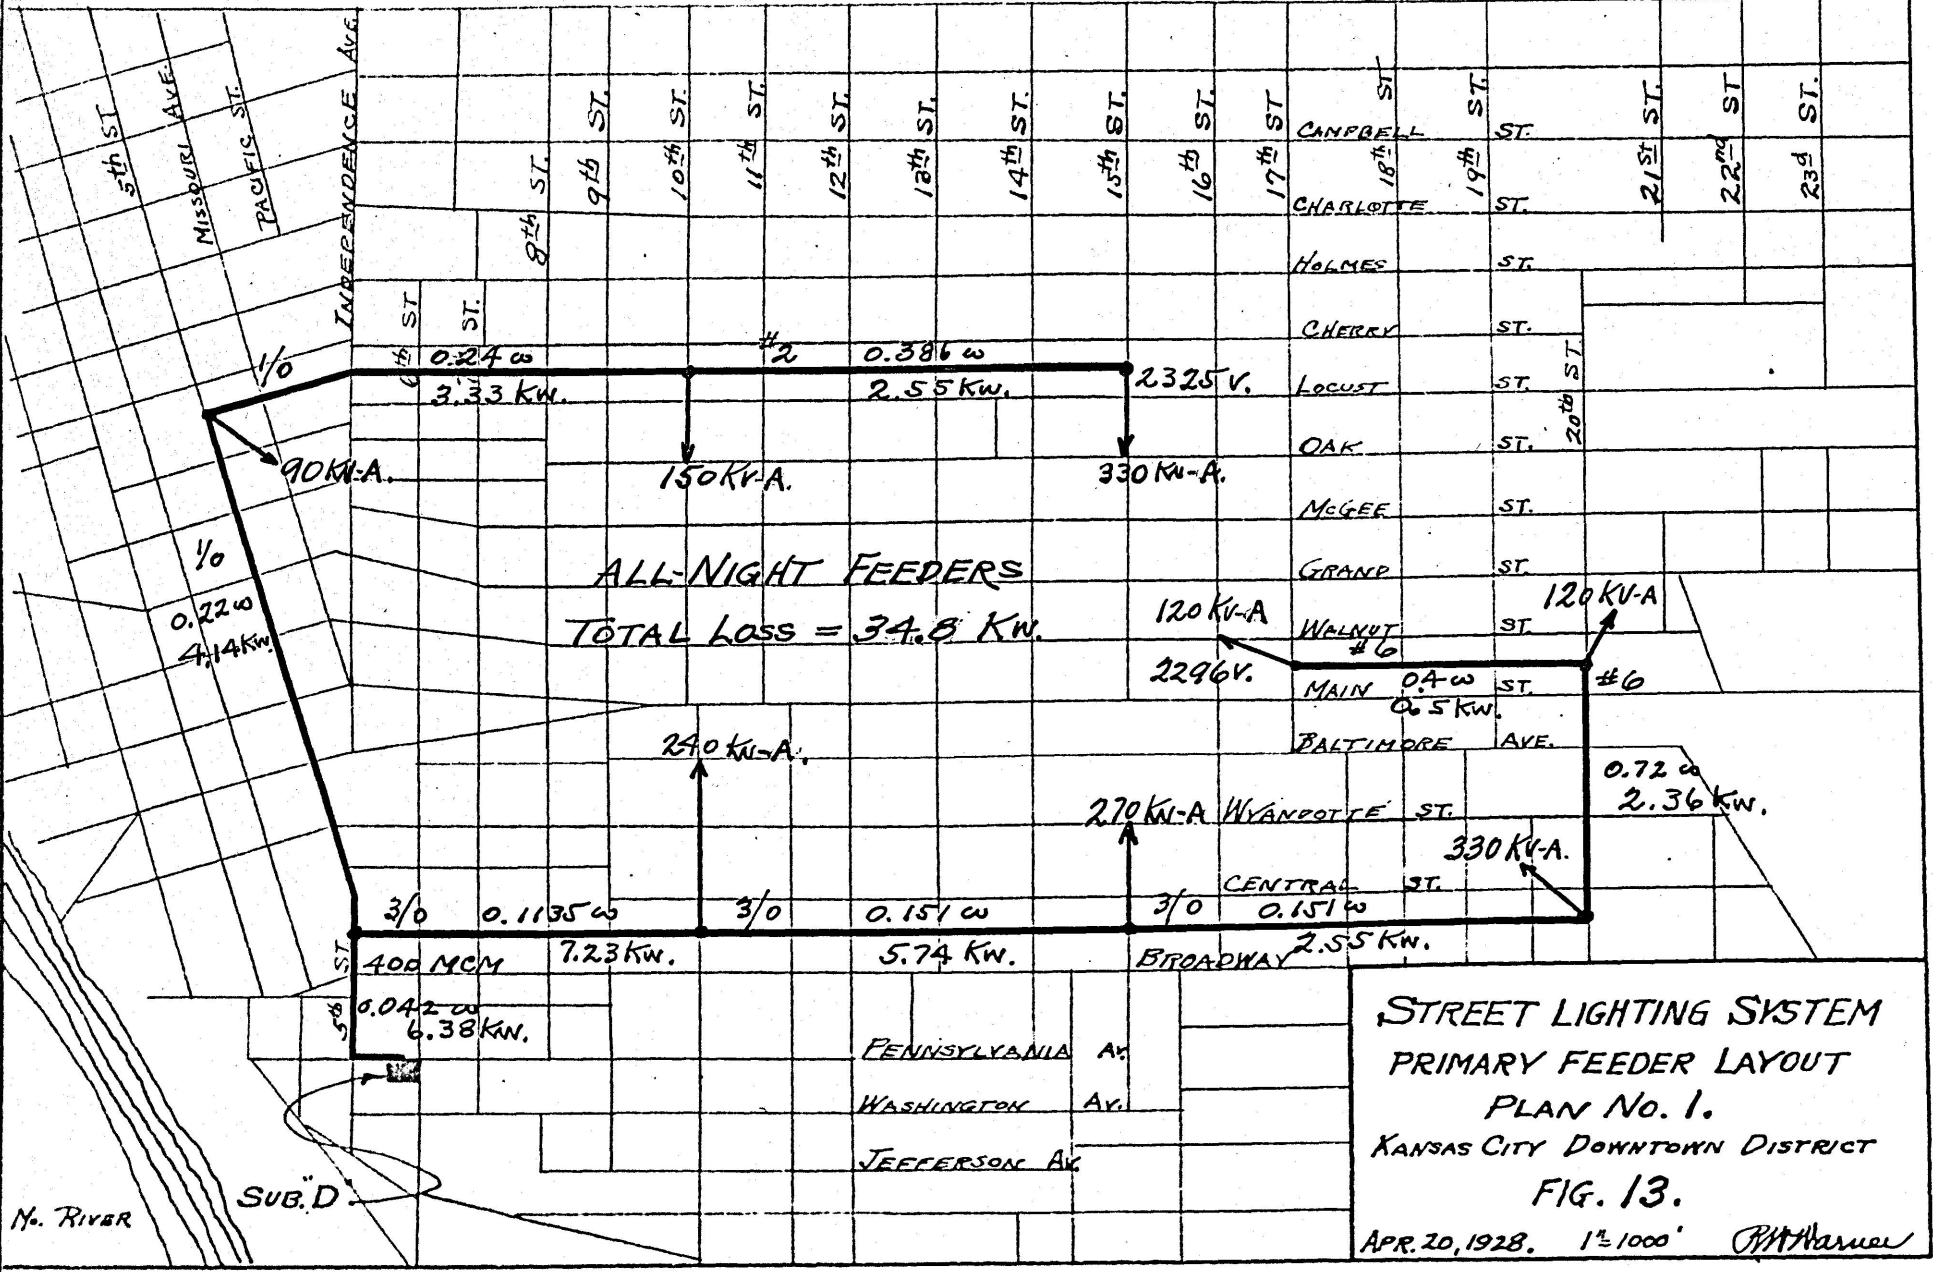 5th ST
MISSOURI AVE.
PACIFIC ST.
INDEPENDENCE AVE.
6th ST
ST.
8th ST.
9th ST.
10th ST.
11th ST.
12th ST.
13th ST.
14th ST.
15th ST.
16th ST.
17th ST
18th ST
19th ST.
20th ST.
21st ST.
22nd ST
23d ST.
CAMPBELL ST.
CHARLOTTE ST.
HOLMES ST.
CHERRY ST.
LOCUST ST.
OAK ST.
McGEE ST.
GRAND ST.
WALNUT ST.
MAIN ST.
BALTIMORE AVE.
WYANDOTTE ST.
CENTRAL ST.
BROADWAY
PENNSYLVANIA AV.
WASHINGTON AV.
JEFFERSON AV.
1/0
0.24 ω
3.33 KW.
#2
0.386 ω
2.55 KW.
2325 V.
90 KV-A.
150 KV-A.
330 KV-A.
1/0
0.22 ω
4.14 KW.
ALL-NIGHT FEEDERS
TOTAL LOSS = 34.8 KW.
120 KV-A
2296 V.
#6
0.4 ω
0.5 KW.
120 KV-A
#6
0.72 ω
2.36 KW.
240 KV-A.
270 KV-A
330 KV-A.
3/0 0.1135 ω
7.23 KW.
3/0 0.151 ω
5.74 KW.
3/0 0.151 ω
2.55 KW.
5th ST
400 MCM
0.042 ω
6.38 KW.
SUB. "D
Mo. RIVER
STREET LIGHTING SYSTEM
PRIMARY FEEDER LAYOUT
PLAN No. 1.
KANSAS CITY DOWNTOWN DISTRICT
FIG. 13.
APR. 20, 1928. 1"=1000' RW Warner